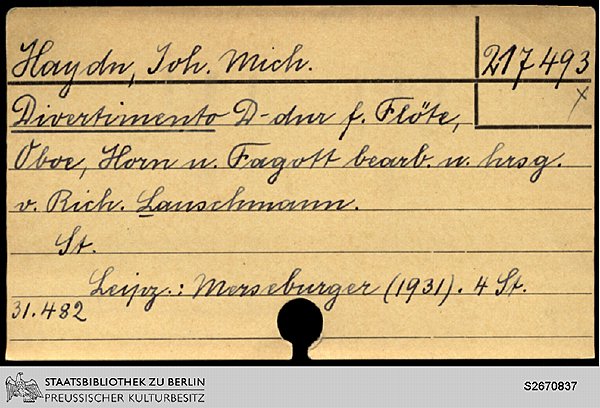 Haydn, Joh. Mich.
217493
x
Divertimento D-dur f. Flöte,
Oboe, Horn u. Fagott bearb. u. hrsg.
v. Rich. Lauschmann.
St.
Leipz.: Merseburger (1931). 4 St.
31.482
STAATSBIBLIOTHEK ZU BERLIN
PREUSSISCHER KULTURBESITZ
S2670837